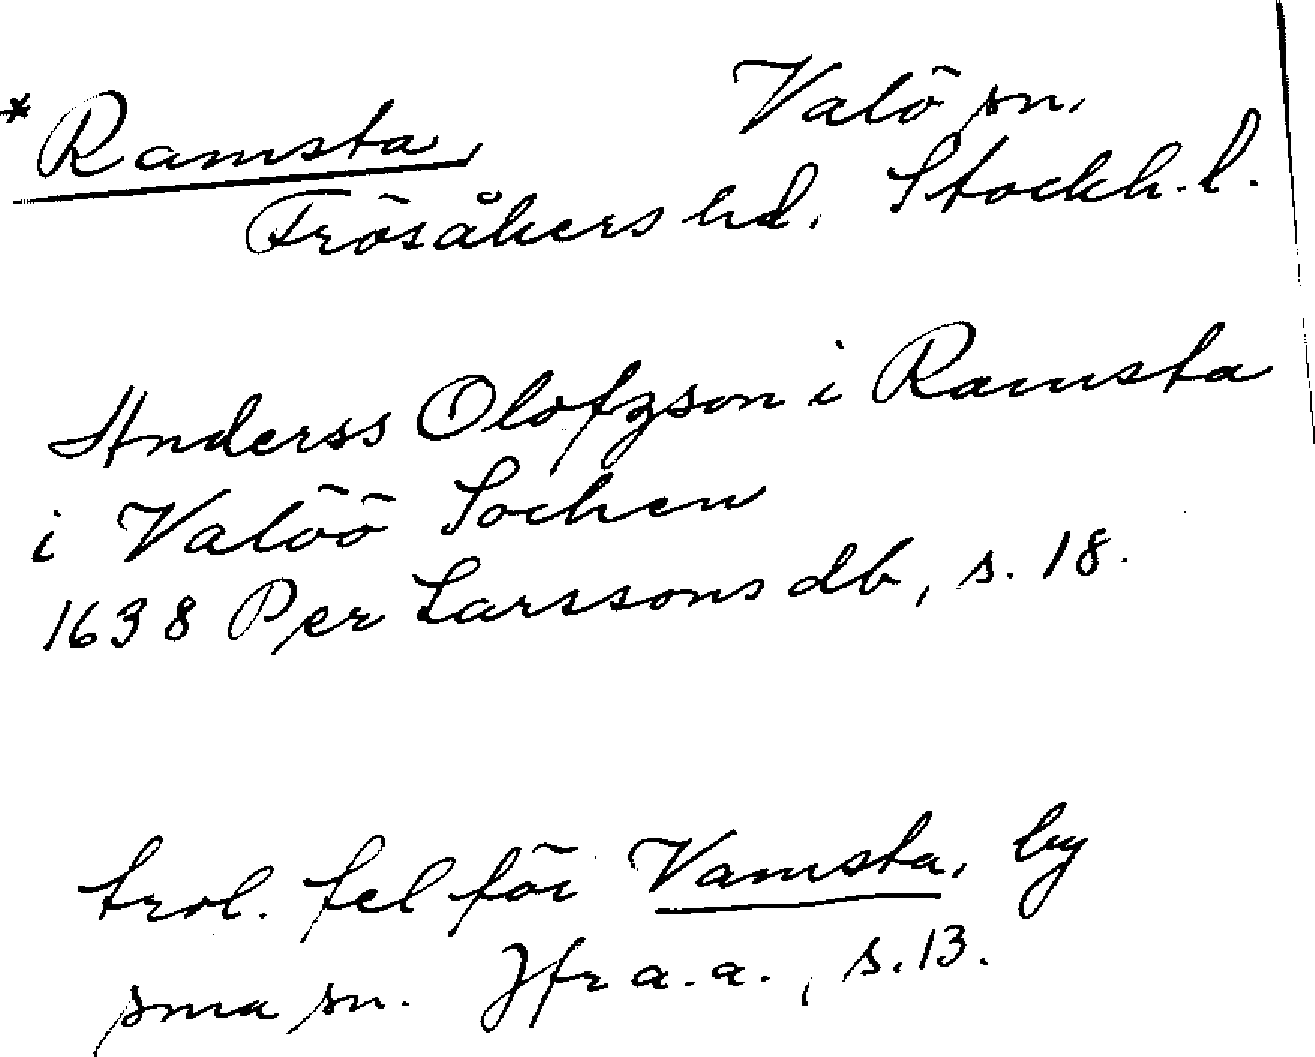 * Ramsta, Valö sn.
Frösåkers hd. Stockh. l.
Anderss Olofzson i Ramsta
i Valöö Sochen
1638 Per Larssons db, s. 18.
trol. fel för Vamsta, by
sma sn. Jfr a.a., s. 13.